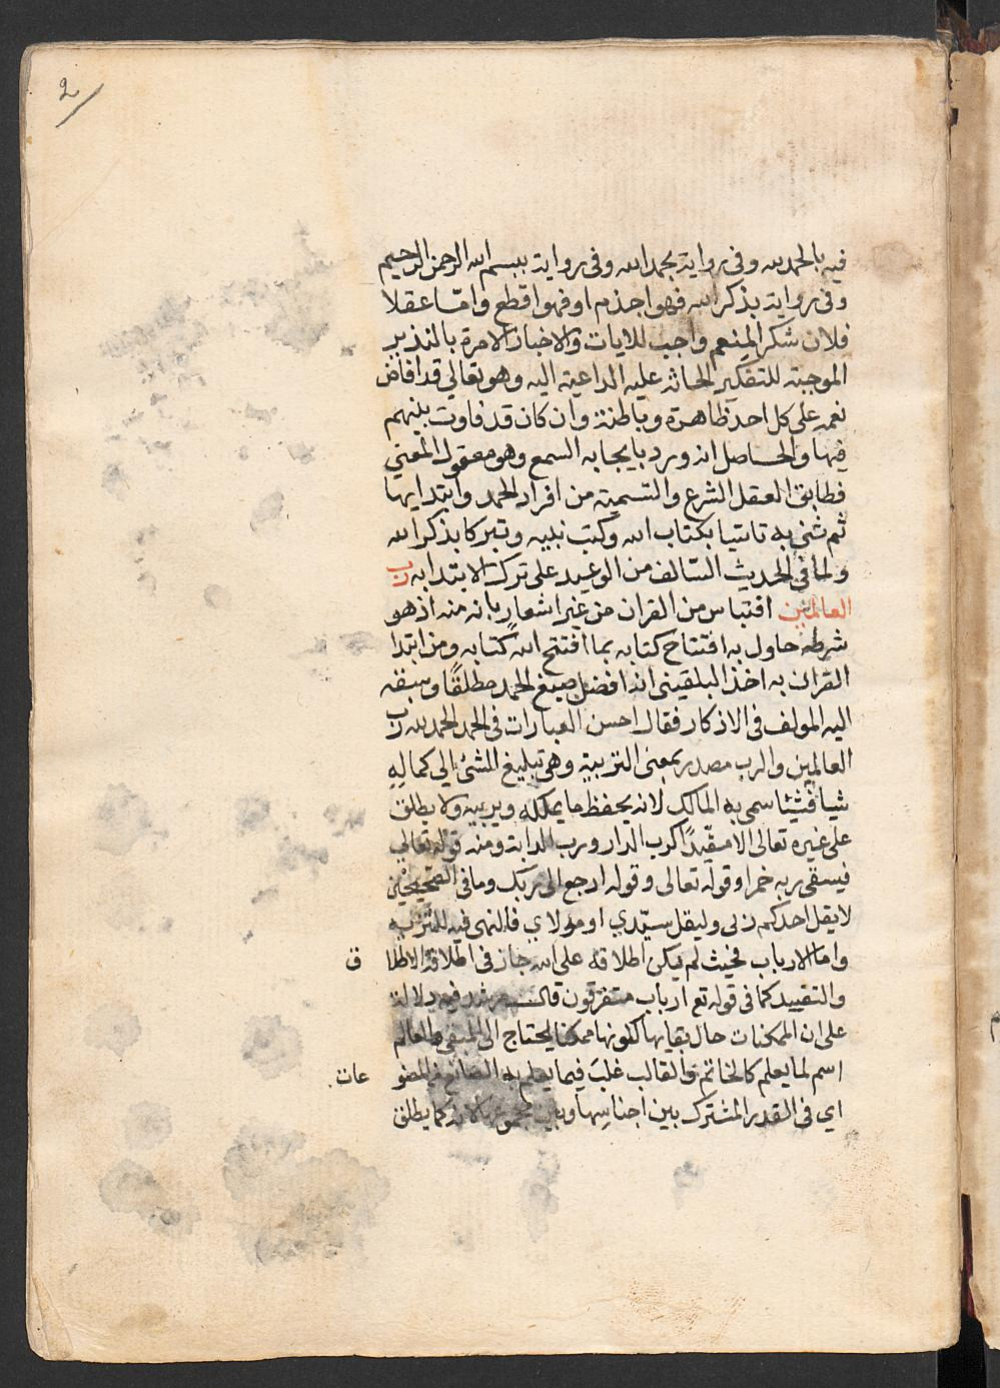 2
فيه بالحمد لله وفي رواية بحمد الله وفي رواية ببسم الله الرحمن الرحيم
وفي رواية بذكر الله فهو اجذم او فهو اقطع وامّا عقلا
فلان شكر المنعم واجب للايات والاخبار الامرة بالتدبر
الموجبة للتفكير الحاثة عليه الداعية اليه وهو تعالي قد افاض
نعمه علي كل احد ظاهرة وباطنة وان كان قد فاوت بينهم
فيها والحاصل انه ورد بايجابه السمع وهو معقول المعني
فطابق العقل الشرع والتسمية من افراد الحمد وابتدا بها
ثم ثني به تاسّيا بكتاب الله وكتب نبيه وتبركا بذكر الله
ولما في الحديث السّالف من الوعيد علي ترك الابتدا به رب
العالمين اقتباس من القران من غير اشعار بانه منه اذ هو
شرطه حاول به افتتاح كتابه بما افتتح الله كتابه ومن ابتدا
القران به اخذ البلقيني انه افضل صيغ الحمد مطلقًا وسبقه
اليه المولف في الاذكار فقال احسن العبارات في الحمد الحمد لله رب
العالمين والرب مصدر بمعني التربية وهي تبليغ الشئ الي كمالِهِ
شيا فشيئا سمي به المالك لانه يحفظ ما يملكه ويربيه ولا يطلق
علي غيره تعالي الا مقيّدًا كرب الدار ورب الدابة ومنه قوله تعالي
فيسقي ربه خمرا وقوله تعالي وقوله ارجع الي ربك وما في الصّحيحين
لا يقل احدكم ربي وليقل سيّدي او مولاي فالنهي فيه للتنزيه
واما الارباب فحيث لم يكن اطلاقه علي الله جاز في اطلاقه الاطلا ق
والتقييد كما في قوله تع ارباب متفرقون قال مرشد فيه دلالة
علي ان الممكنات حال بقايها لكونها ممكنا يحتاج الي المبقي والعالم
اسم لما يعلم كالخاتم والقالب غلبَ فيما يعلم به الصانع من المصنو عات
اي في القدر المشترك بين اجناسها وبين مجموعها فانه كما يطلق